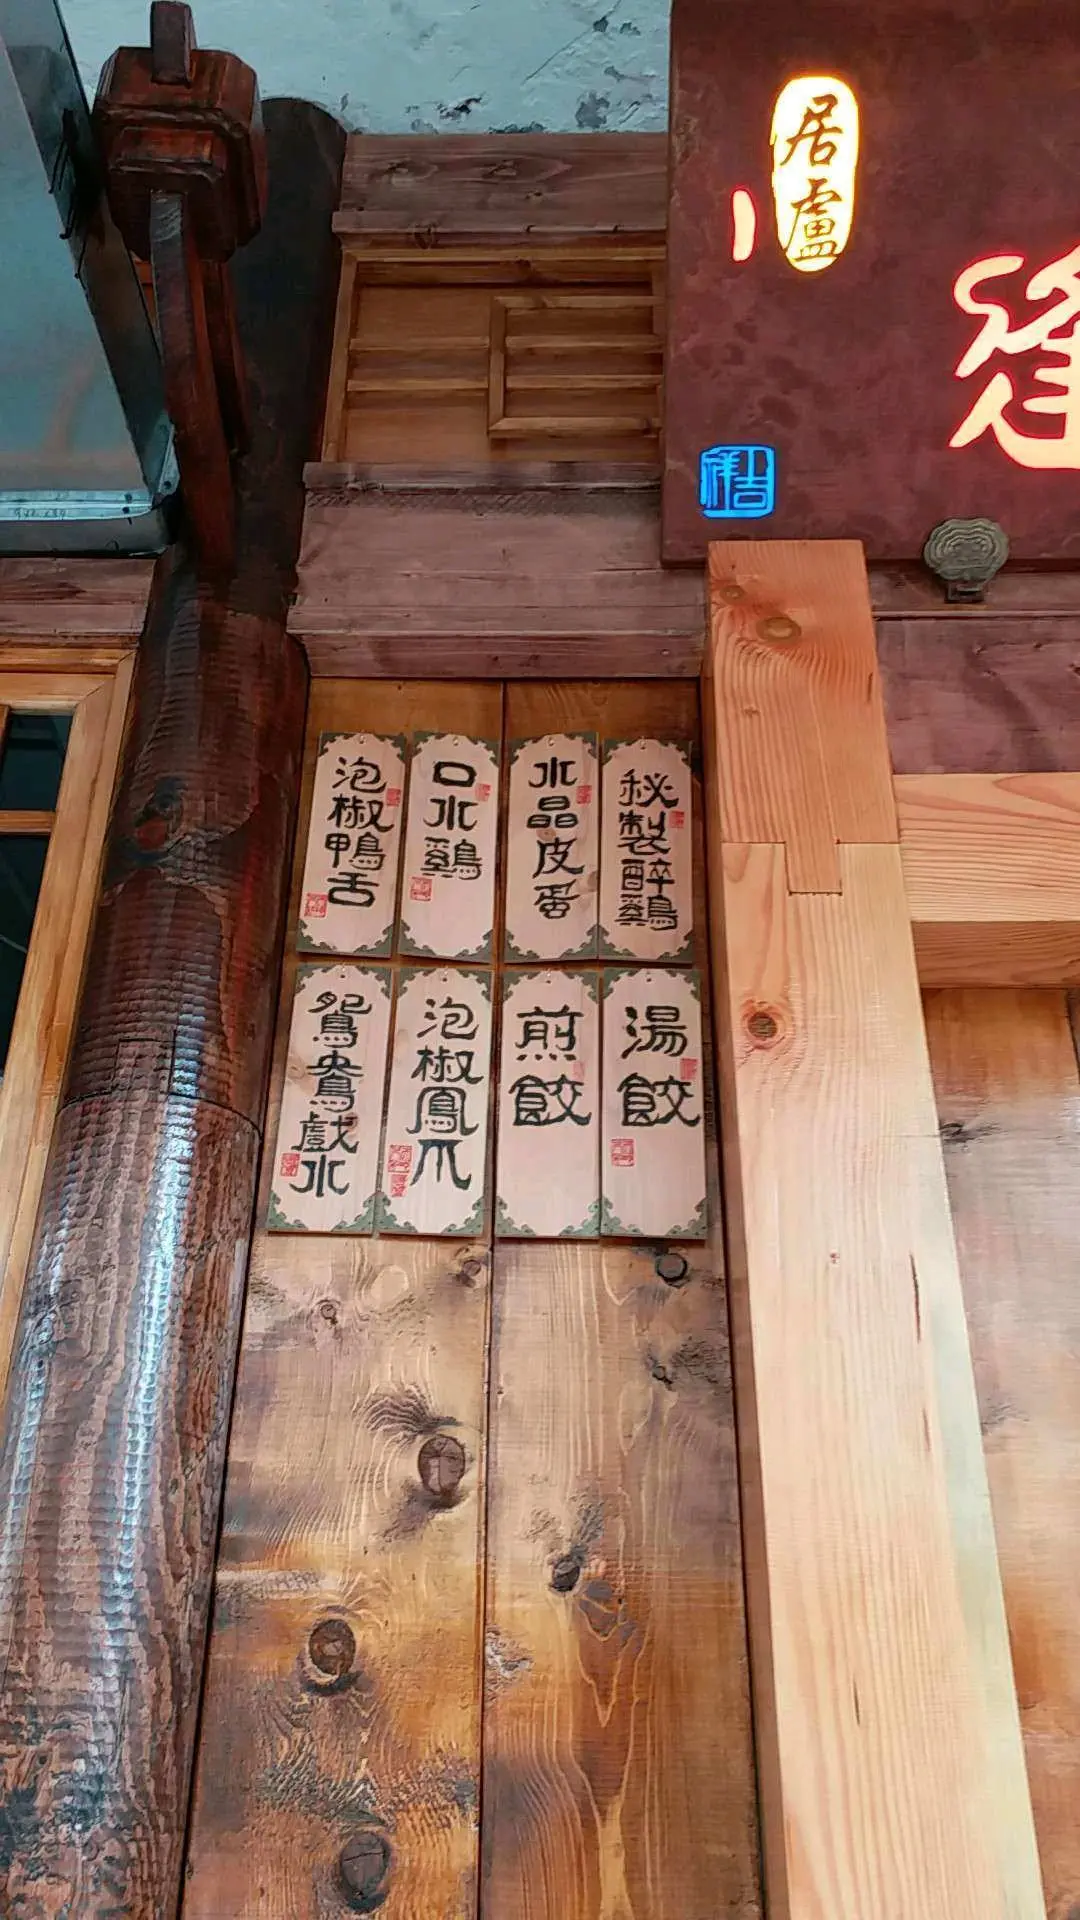 居盧
逢
吉祥
秘製醉鷄
水晶皮蛋
口水鷄
泡椒鴨舌
湯餃
煎餃
泡椒鳳爪
鴛鴦戲水